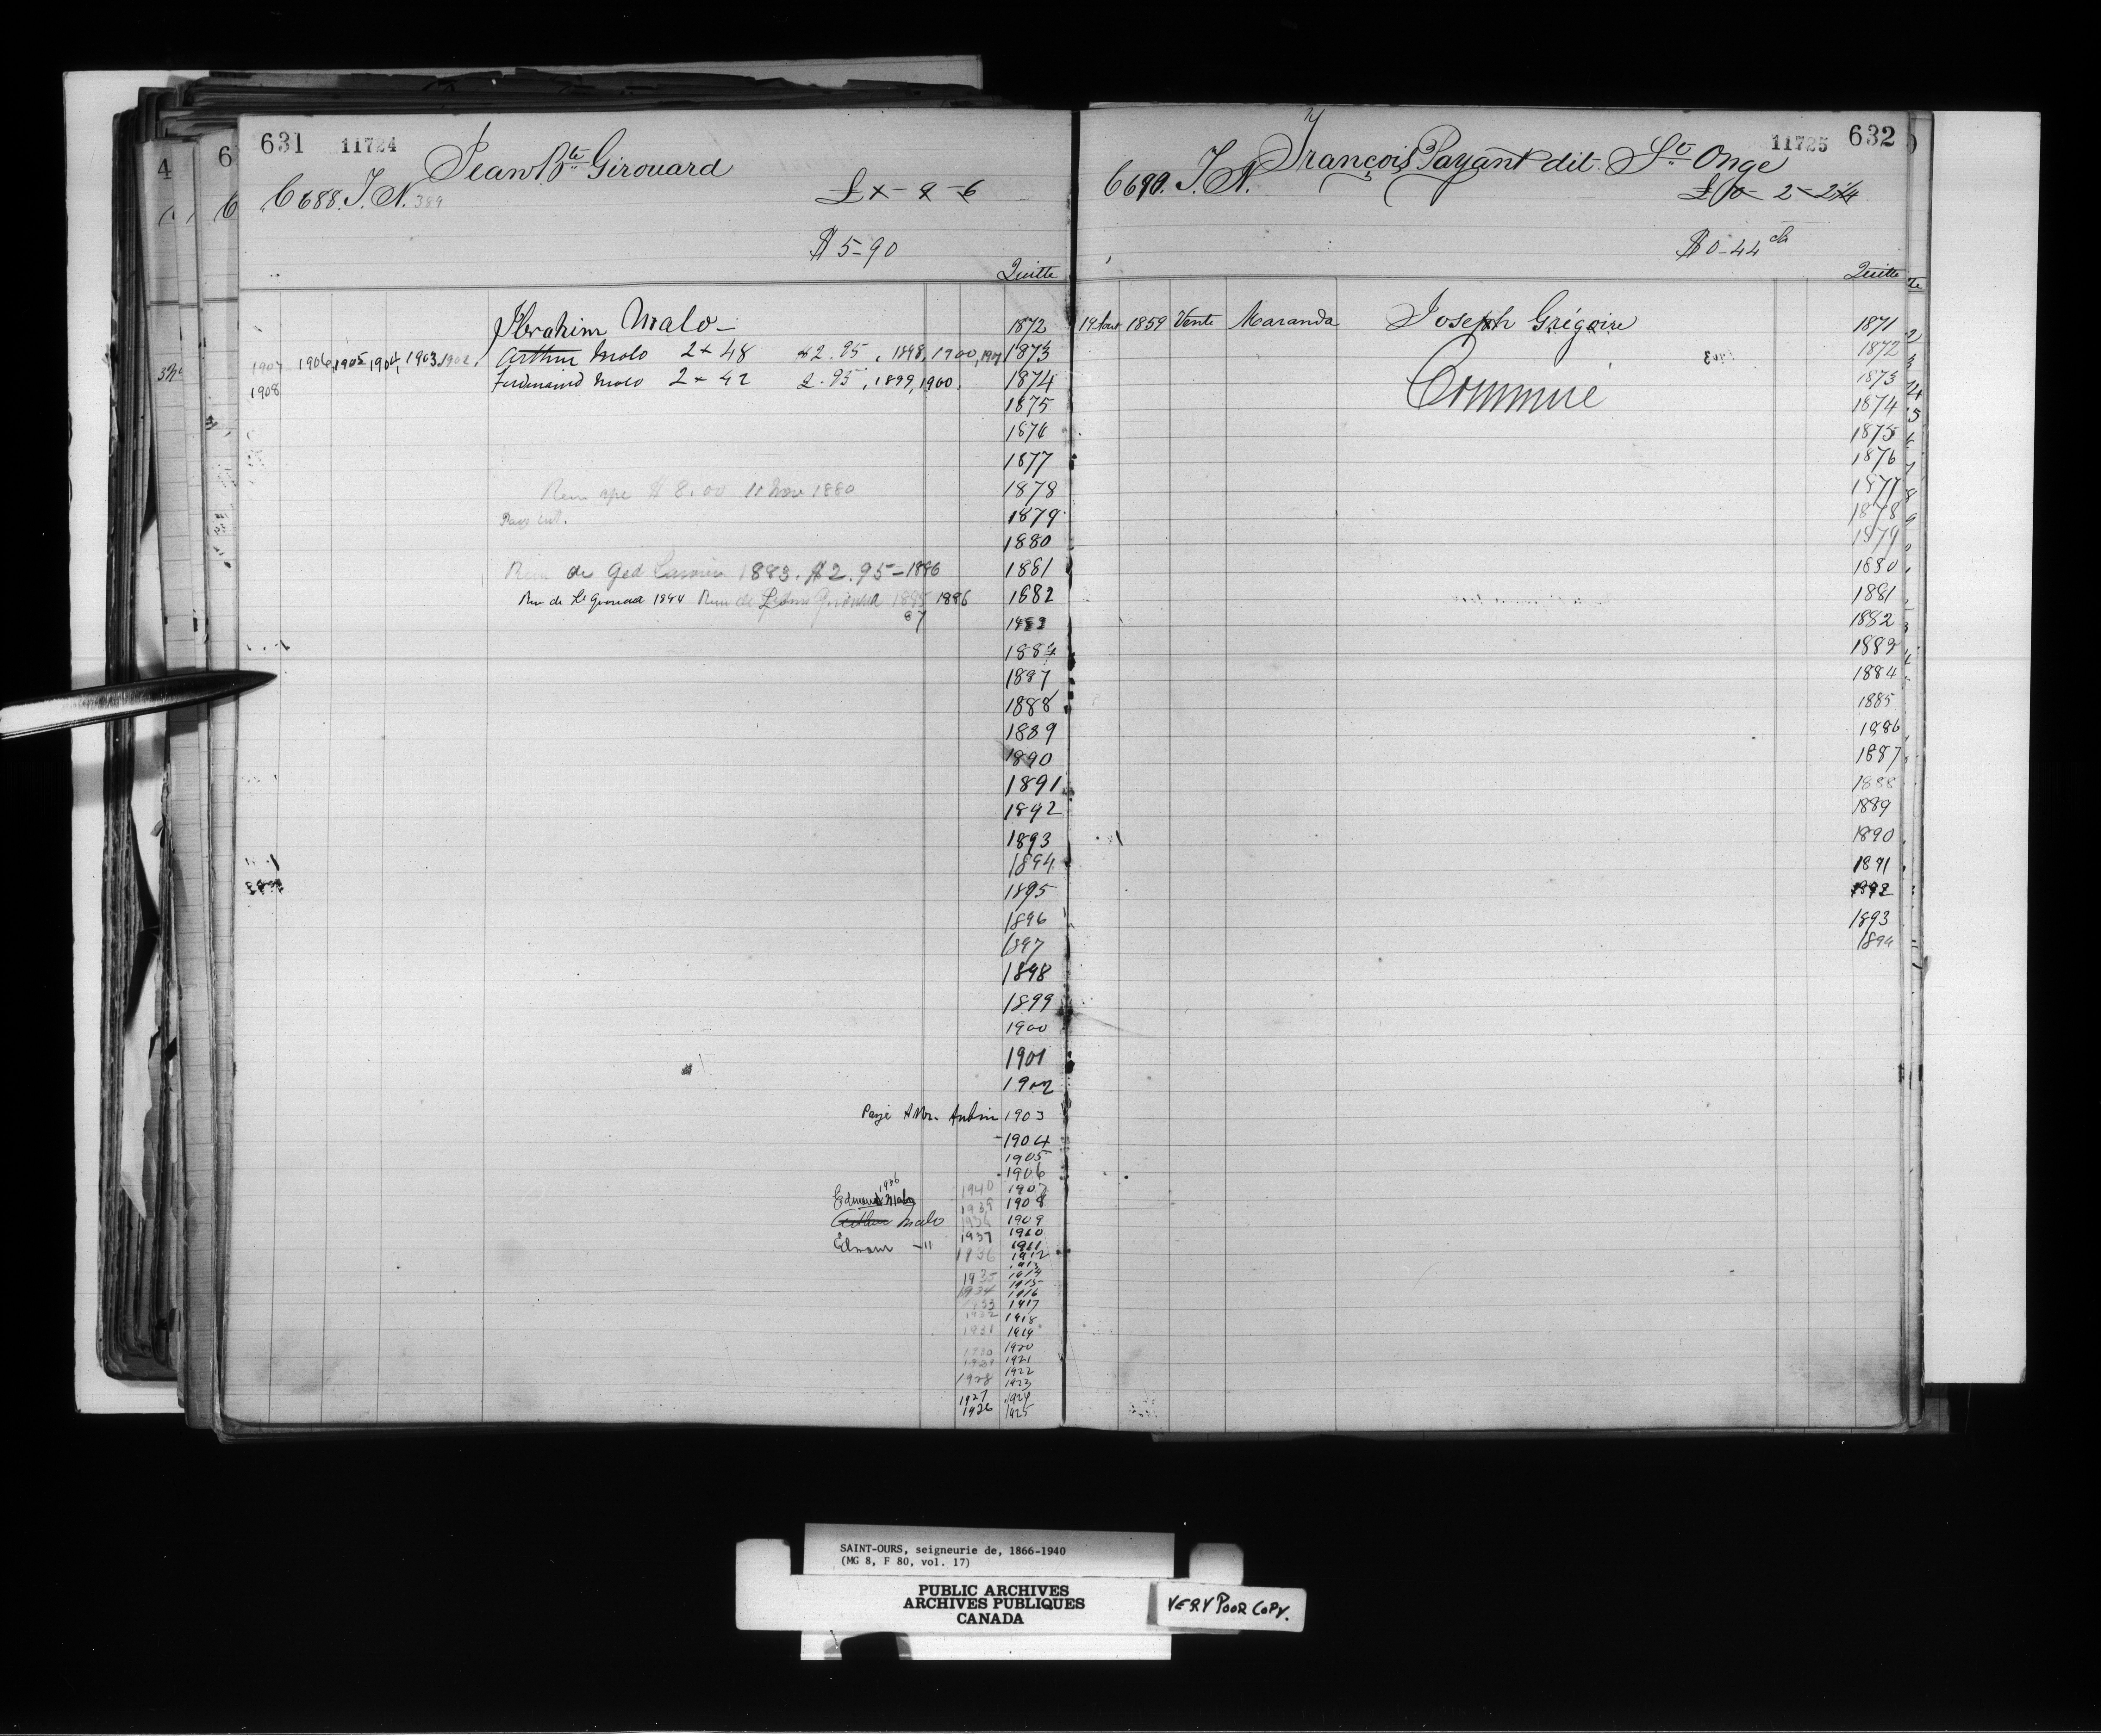 631 11724
Jean Bte Girouard
6688. J. N. 389
$5-90
Quitte
Abrahim Malo - 1872
1907 1906, 1905, 1904, 1903, 1902, Arthur Malo 2 x 48 $2.95, 1898, 1900, 1901 1873
1908 Ferdinand Malo 2 x 42 2.95, 1899, 1900. 1874
1875
1876
1877
$8.00 11 Nov 1880 1878
1879
1880
1883. $2.95 - 1886 1881
1884 1885 1886 1882
87 1883
1884
1887
1888
1889
1890
1891
1892
1893
1894
1895
1896
1897
1898
1899
1900
1901
1902
Payé à Mr. Aubin 1903
1904
1905
1906
1940 1907
Edmond Malo 1939 1908
Arthur Malo 1909
1937 1910
1911
1936 1912
1913
1935 1914
1934 1915
1916
1933 1917
1932 1918
1931 1919
1930 1920
1929 1921
1928 1922
1923
1927 1924
1926 1925
11725 632
François Payant dit St Onge
6690. J. N.
£0-2-2 1/4
$0-44 cts
Quitte
19 Aout 1859 Vente Maranda Joseph Grégoire 1871
1872
Commué 1873
1874
1875
1876
1877
1878
1879
1880
1881
1882
1883
1884
1885
1886
1887
1888
1889
1890
1891
1892
1893
1894
SAINT-OURS, seigneurie de, 1866-1940
(MG 8, F 80, vol. 17)
PUBLIC ARCHIVES
ARCHIVES PUBLIQUES
CANADA
VERY POOR COPY.